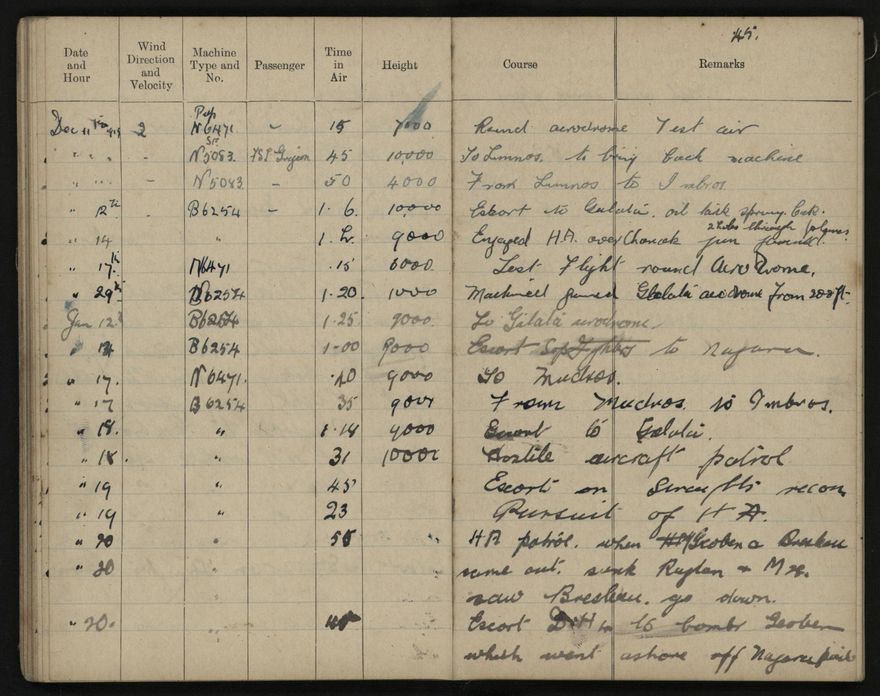 45.
Date and Hour Wind Direction and Velocity Machine Type and No. Passenger Time in Air Height Course Remarks
Dec 11th 2 Pup N6471 - 15 7000 Round aerodrome Test air
" " " - N5083 45 10,000 To Lemnos. to bring back machine
" " " - N5083 - 50 4000 From Lemnos to Imbros
" 12th - B6254 - 1. 6. 10,000 Escort to Galata. oil tank sprung leak.
2 holes through
" 14 " 1. 9000 Engaged H.A. over Chanak gun jammed.
" 17th N6471 .15 6000 Test Flight round Aerodrome.
" 29th B6254 1.20. 1000 Machined gunned Galata aerodrome from 200 ft.
Jan 12th B6254 1.25 9000 To Galata aerodrome.
" 14 B6254 1-00 9000 Escort Sop Fighters to Nagara.
" 17. N6471. .40 9000 To Mudros.
" 17 B6254 35 9000 From Mudros. to Imbros.
" 18. " 1.18 9000 Escort to Galata.
" 18. " 31 10000 Hostile aircraft patrol
" 19 " 45 Escort on Straights recon
" 19 " 23 Pursuit of H A.
" 20 " 55 " H A patrol. when Goeben a Breslau
" 20 " came out. sunk Raglan & M 28.
" saw Breslau. go down.
" 20. " 45 " Escort D.H 4 to bomb Goeben
which went ashore off Nagara point